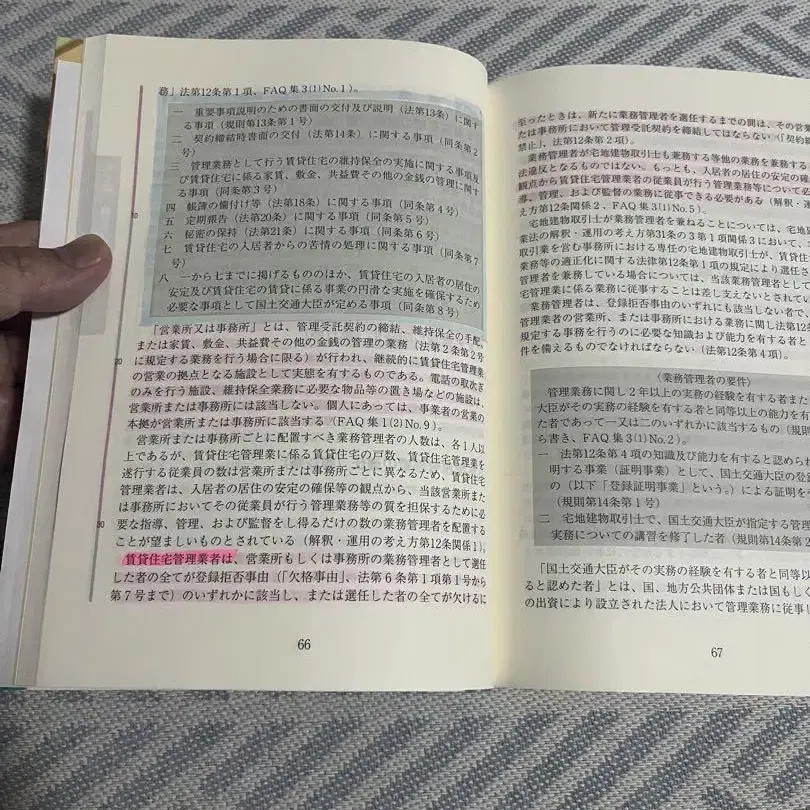 務」法第12条第1項、FAQ集3(1)No.1)。
一 重要事項説明のための書面の交付及び説明(法第13条)に関す
る事項(規則第13条第1号)
二 契約締結時書面の交付(法第14条)に関する事項(同条第2
号)
三 管理業務として行う賃貸住宅の維持保全の実施に関する事項及
び賃貸住宅に係る家賃、敷金、共益費その他の金銭の管理に関す
る事項(同条第3号)
四 帳簿の備付け等(法第18条)に関する事項(同条第4号)
五 定期報告(法第20条)に関する事項(同条第5号)
六 秘密の保持(法第21条)に関する事項(同条第6号)
七 賃貸住宅の入居者からの苦情の処理に関する事項(同条第7
号)
八 一から七までに掲げるもののほか、賃貸住宅の入居者の居住の
安定及び賃貸住宅の賃貸に係る事業の円滑な実施を確保するため
必要な事項として国土交通大臣が定める事項(同条第8号)
「営業所又は事務所」とは、管理受託契約の締結、維持保全の手配、
または家賃、敷金、共益費その他の金銭の管理の業務(法第2条第2号
に規定する業務を行う場合に限る)が行われ、継続的に賃貸住宅管理業
の営業の拠点となる施設として実態を有するものである。電話の取次ぎ
のみを行う施設、維持保全業務に必要な物品等の置き場などの施設は、
営業所または事務所には該当しない。個人にあっては、事業者の営業の
本拠が営業所または事務所に該当する(FAQ集1(2)No.9)。
営業所または事務所ごとに配置すべき業務管理者の人数は、各1人以
上であるが、賃貸住宅管理業に係る賃貸住宅の戸数、賃貸住宅管理業を
遂行する従業員の数は営業所または事務所ごとに異なるため、賃貸住宅
管理業者は、入居者の居住の安定の確保等の観点から、当該営業所また
は事務所においてその従業員が行う管理業務等の質を担保するために必
要な指導、管理、および監督をし得るだけの数の業務管理者を配置する
ことが望ましいものとされている(解釈・運用の考え方第12条関係1)。
賃貸住宅管理業者は、営業所もしくは事務所の業務管理者として選任
した者の全てが登録拒否事由(「欠格事由」、法第6条第1項第1号から
第7号まで)のいずれかに該当し、または選任した者の全てが欠けるに
10
20
30
66
至ったときは、新たに業務管理者を選任するまでの間は、その営業
たは事務所において管理受託契約を締結してはならない(「契約締
禁止」、法第12条第2項)。
業務管理者が宅地建物取引士も兼務する等他の業務を兼務する
法違反となるものではない。もっとも、入居者の居住の安定の確
観点から賃貸住宅管理業者の従業員が行う管理業務等について必
導、管理、および監督の業務に従事できる必要がある(解釈・運
え方第12条関係2、FAQ集3(1)No.5)。
宅地建物取引士が業務管理者を兼ねることについては、宅地建
業法の解釈・運用の考え方第31条の3第1項関係3において、
取引業を営む事務所における専任の宅地建物取引士が、賃貸住
業務等の適正化に関する法律第12条第1項の規定により選任さ
管理者を兼務している場合については、当該業務管理者として
宅管理業に係る業務に従事することは差し支えないとされてい
業務管理者は、登録拒否事由のいずれにも該当しない者で、
管理業者の営業所、または事務所における業務に関し法第12
規定する事務を行うのに必要な知識および能力を有する者と
件を備えるものでなければならない(法第12条第4項)。
〈業務管理者の要件〉
管理業務に関し2年以上の実務の経験を有する者また
大臣がその実務の経験を有する者と同等以上の能力を有
た者であって一又は二のいずれかに該当するもの(規則
ら書き、FAQ集3(1)No.2)。
一 法第12条第4項の知識及び能力を有すると認められ
明する事業(証明事業)として、国土交通大臣の登録
の(以下「登録証明事業」という。)による証明を
(規則第14条第1号)
二 宅地建物取引士で、国土交通大臣が指定する管理
実務についての講習を修了した者(規則第14条第2
「国土交通大臣がその実務の経験を有する者と同等以
ると認めた者」とは、国、地方公共団体または国もしく
の出資により設立された法人において管理業務に従事し
67